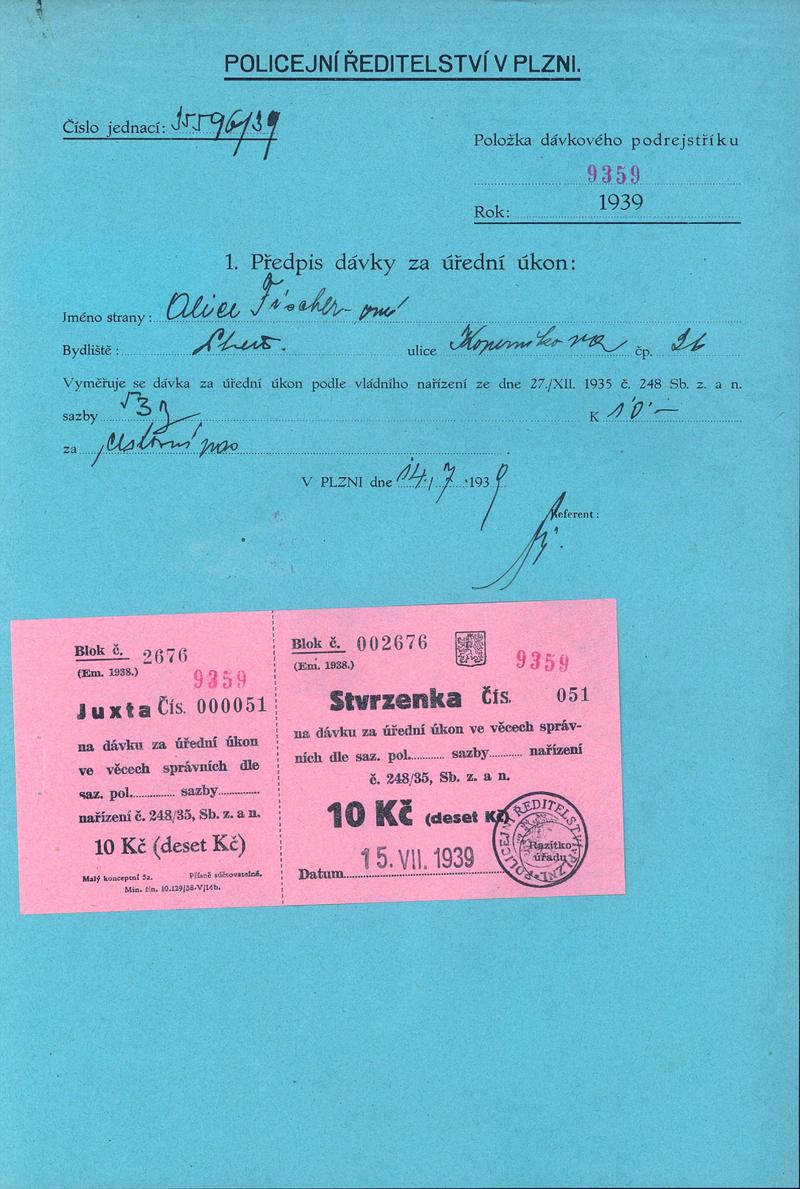 POLICEJNÍ ŘEDITELSTVÍ V PLZNI.
Číslo jednací: 15596/39
Položka dávkového podrejstříku
9359
Rok: 1939
1. Předpis dávky za úřední úkon:
Jméno strany: Alice Fischer-ová
Bydliště: ulice Koperníkova čp. 26
Vyměřuje se dávka za úřední úkon podle vládního nařízení ze dne 27./XII. 1935 č. 248 Sb. z. a n.
sazby K 10·—
za cestovní pas
V PLZNI dne 14./7. 1939
Referent:
Blok č. 2676
(Em. 1938.)
9359
Juxta Čís. 000051
na dávku za úřední úkon
ve věcech správních dle
saz. pol. sazby
nařízení č. 248/35, Sb. z. a n.
10 Kč (deset Kč)
Malý konceptní 5a. Přísně súčtovatelná.
Min. fin. 10.129/38-V/14b.
Blok č. 002676
(Em. 1938.)
9359
Stvrzenka Čís. 051
na dávku za úřední úkon ve věcech správ-
ních dle saz. pol. sazby nařízení
č. 248/35, Sb. z. a n.
10 Kč (deset Kč)
15. VII. 1939
Datum
POLICEJNÍ ŘEDITELSTVÍ V PLZNI
Razítko
úřadu